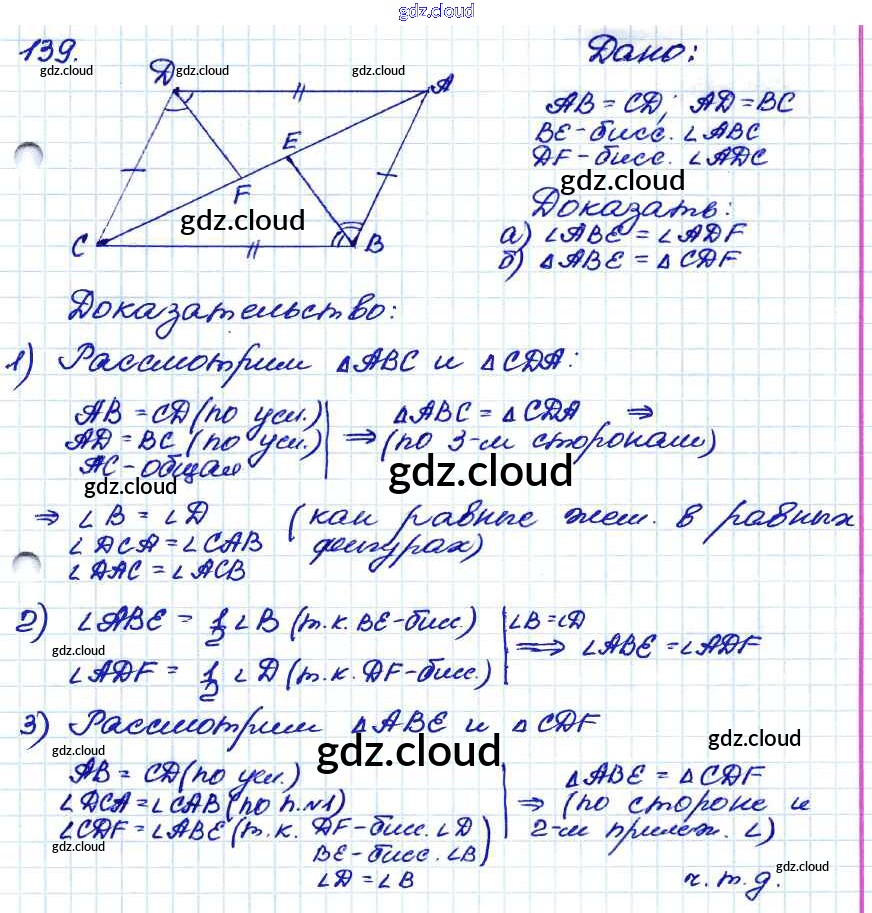 gdz.cloud
139.
Дано:
gdz.cloud gdz.cloud gdz.cloud
D A
AB = CD; AD = BC
BE - бисс. ∠ABC
DF - бисс. ∠ADC
E
F
gdz.cloud
gdz.cloud
Доказать:
C B
а) ∠ABE = ∠ADF
б) △ABE = △CDF
Доказательство:
1) Рассмотрим △ABC и △CDA:
AB = CD (по усл.)
AD = BC (по усл.)
AC - общая
⇒ △ABC = △CDA ⇒
(по 3-м сторонам)
gdz.cloud
gdz.cloud
⇒ ∠B = ∠D (как равные элем. в равных
∠DCA = ∠CAB фигурах)
∠DAC = ∠ACB
2) ∠ABE = 1/2 ∠B (т.к. BE - бисс)
gdz.cloud
∠ADF = 1/2 ∠D (т.к. DF - бисс.)
∠B = ∠D
⇒ ∠ABE = ∠ADF
3) Рассмотрим △ABE и △CDF
gdz.cloud gdz.cloud gdz.cloud
AB = CD (по усл.)
∠DCA = ∠CAB (по п.№1)
∠CDF = ∠ABE (т.к. DF - бисс. ∠D
BE - бисс. ∠B)
∠D = ∠B
△ABE = △CDF
⇒ (по стороне и
2-м прилеж. ∠)
gdz.cloud
gdz.cloud
ч.т.д.